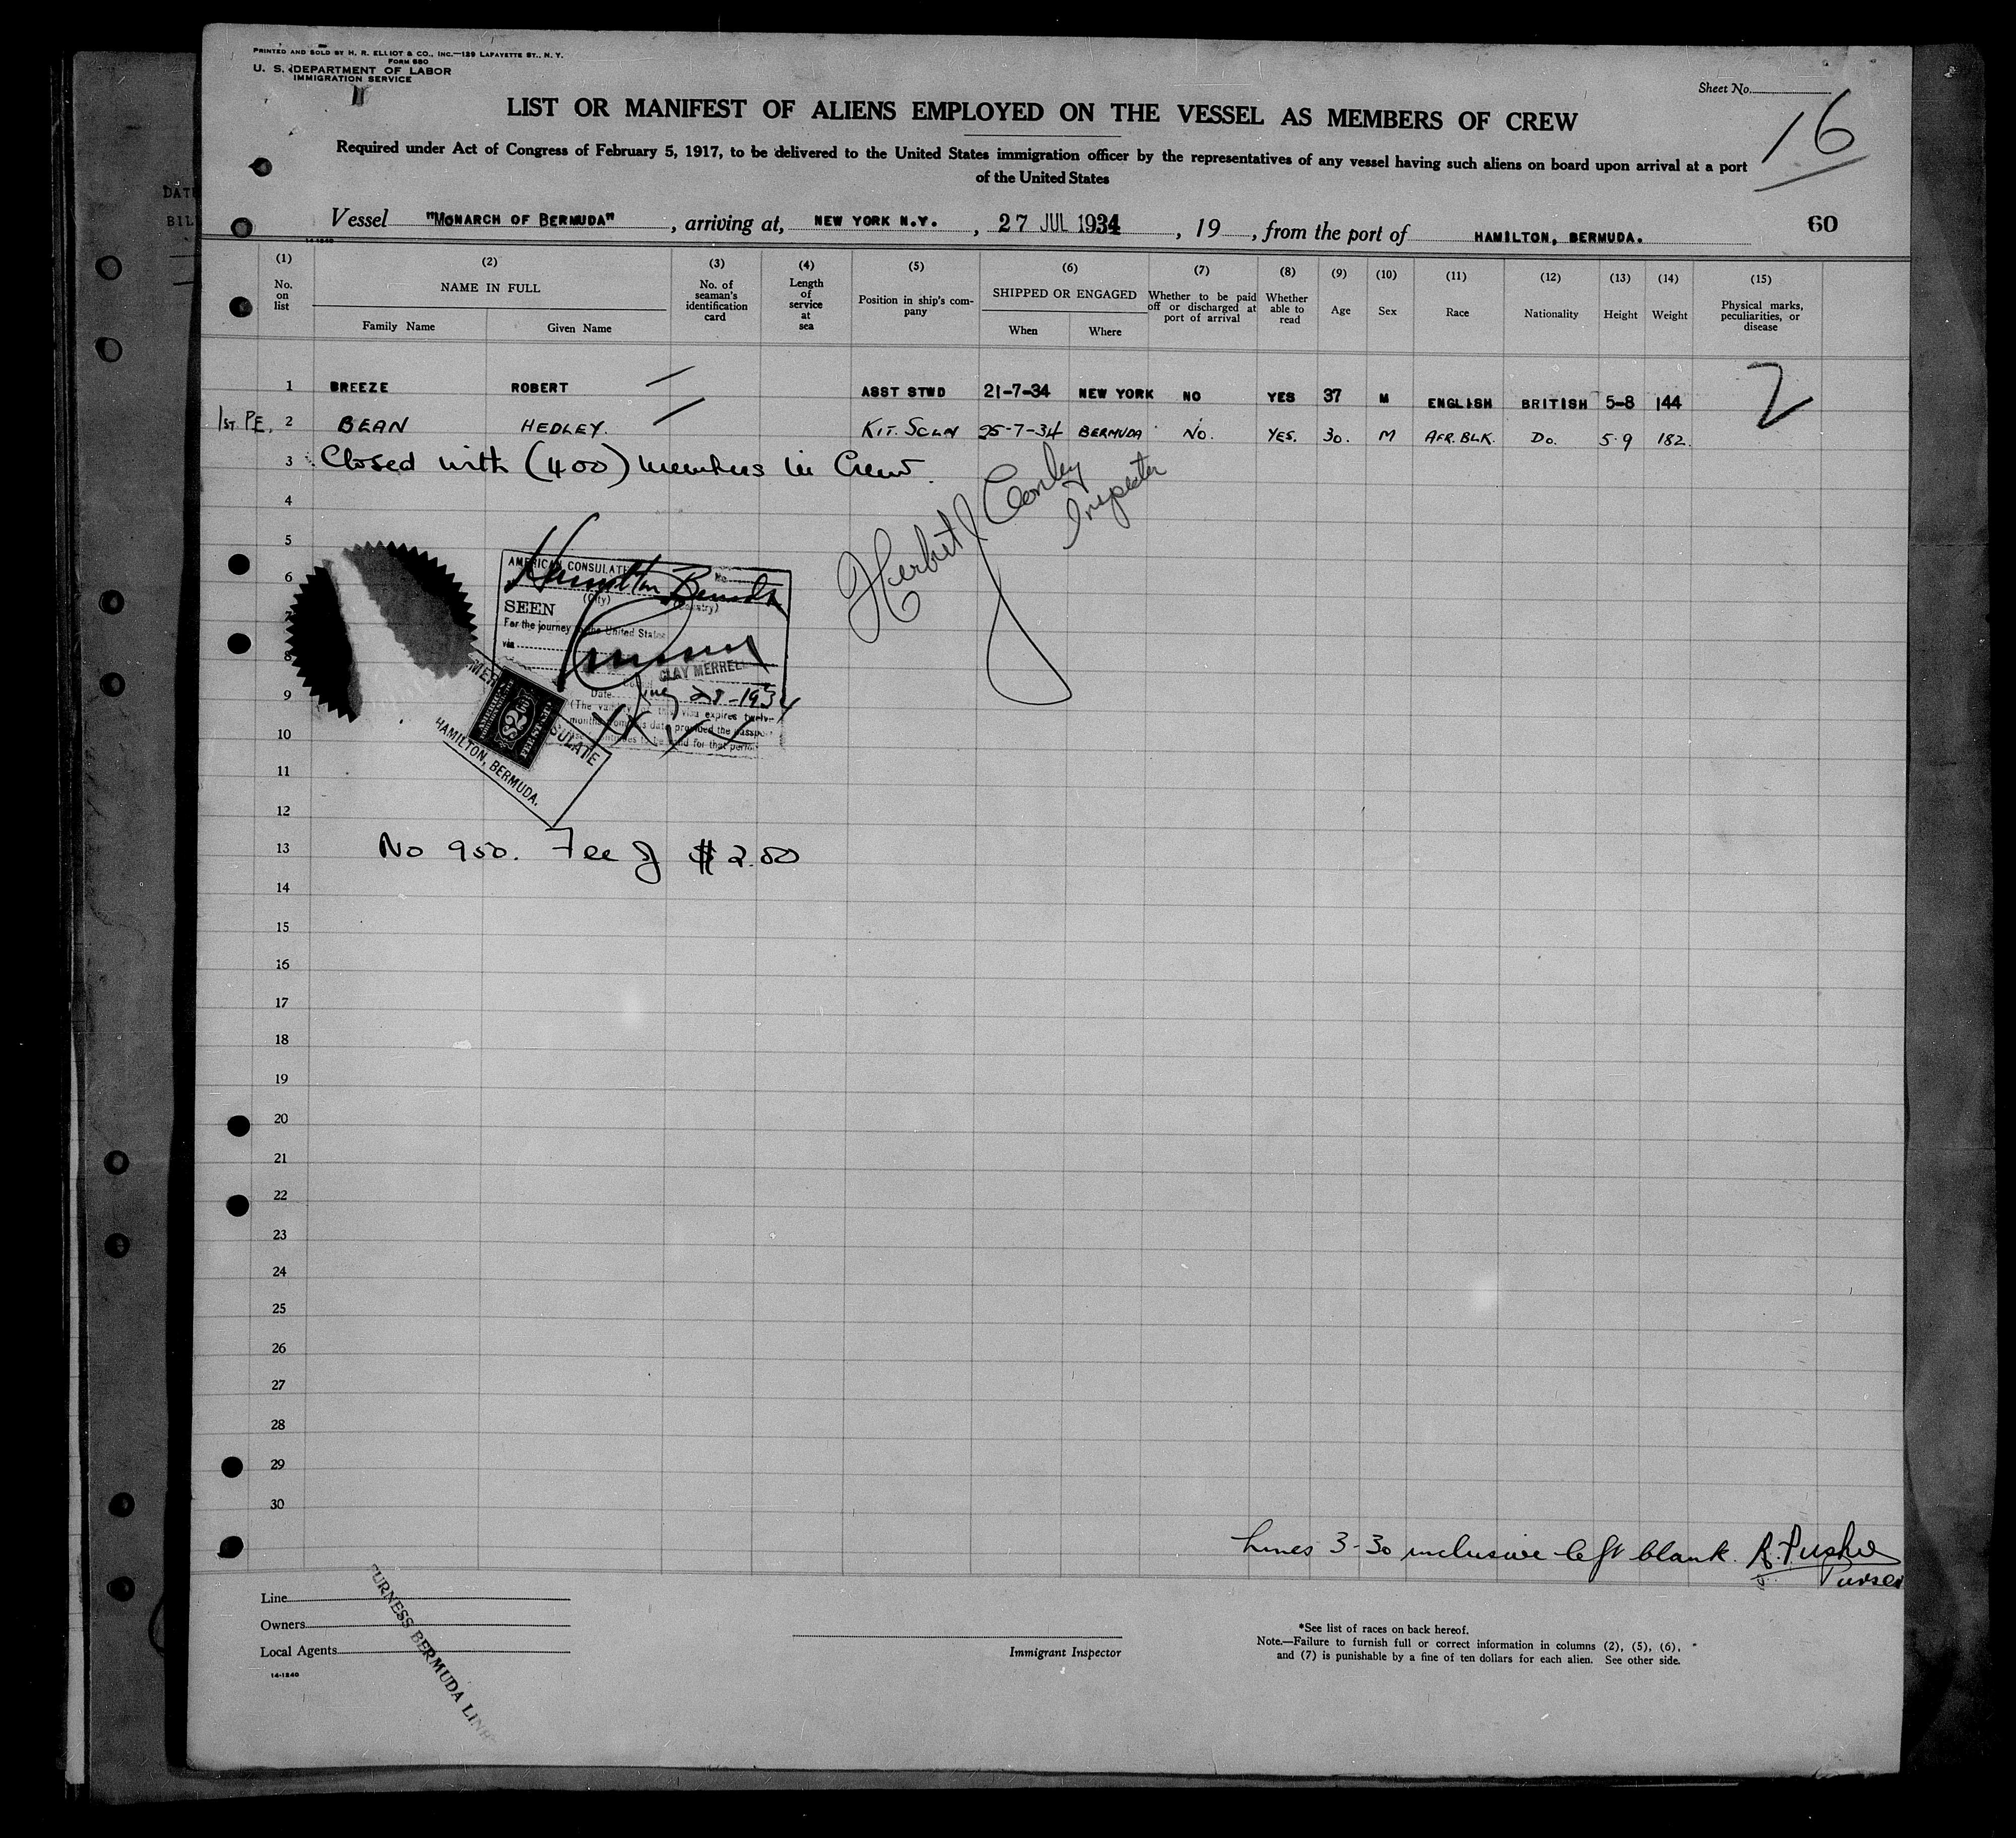 PRINTED AND SOLD BY H. R. ELLIOT & CO., INC.—129 LAFAYETTE ST., N. Y.
FORM 680
U. S. DEPARTMENT OF LABOR
IMMIGRATION SERVICE
Sheet No.
16
LIST OR MANIFEST OF ALIENS EMPLOYED ON THE VESSEL AS MEMBERS OF CREW
Required under Act of Congress of February 5, 1917, to be delivered to the United States immigration officer by the representatives of any vessel having such aliens on board upon arrival at a port
of the United States
DATE
BIL
Vessel "MONARCH OF BERMUDA", arriving at, NEW YORK N.Y., 27 JUL 1934, 19, from the port of HAMILTON, BERMUDA. 60
14-1240
(1) No. on list
(2) NAME IN FULL
Family Name Given Name
(3) No. of seaman's identification card
(4) Length of service at sea
(5) Position in ship's company
(6) SHIPPED OR ENGAGED
When Where
(7) Whether to be paid off or discharged at port of arrival
(8) Whether able to read
(9) Age
(10) Sex
(11) Race
(12) Nationality
(13) Height
(14) Weight
(15) Physical marks, peculiarities, or disease
1 BREEZE ROBERT ASST STWD 21-7-34 NEW YORK NO YES 37 M ENGLISH BRITISH 5-8 144
2
1ST. P.E. 2 BEAN HEDLEY. KIT. SCLN 25-7-34 BERMUDA NO. YES. 30. M AFR. BLK. Do. 5.9 182.
3 Closed with (400) members in Crew.
Herbert J Conley
Inspector
4
5
6
7
8
9
10
11
12
AMERICAN CONSULATE No
Hamilton Bermuda
(City) (Country)
SEEN
For the journey to the United States
via
CLAY MERRELL
Date 1934
(The validity of this visa expires twelve
months from this date provided the passport
continues to be valid for that period
AMERICAN CONSULATE
HAMILTON, BERMUDA.
$2.00
FEE STAMP
13 No 950. Fee of $2.00
14
15
16
17
18
19
20
21
22
23
24
25
26
27
28
29
30
Lines 3-30 inclusive left blank.
Purser
Line
Owners
Local Agents
14-1240
FURNESS BERMUDA LINE
Immigrant Inspector
*See list of races on back hereof.
Note.—Failure to furnish full or correct information in columns (2), (5), (6),
and (7) is punishable by a fine of ten dollars for each alien. See other side.